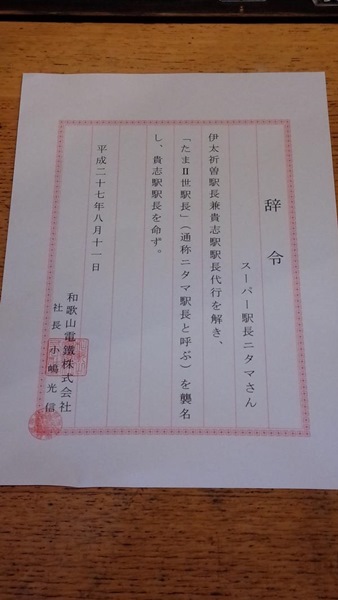 辞令
スーパー駅長ニタマさん
伊太祈曽駅長兼貴志駅駅長代行を解き、
「たまⅡ世駅長」（通称ニタマ駅長と呼ぶ）を襲名
し、貴志駅駅長を命ず。
平成二十七年八月十一日
和歌山電鐵株式会社
社長 小嶋光信